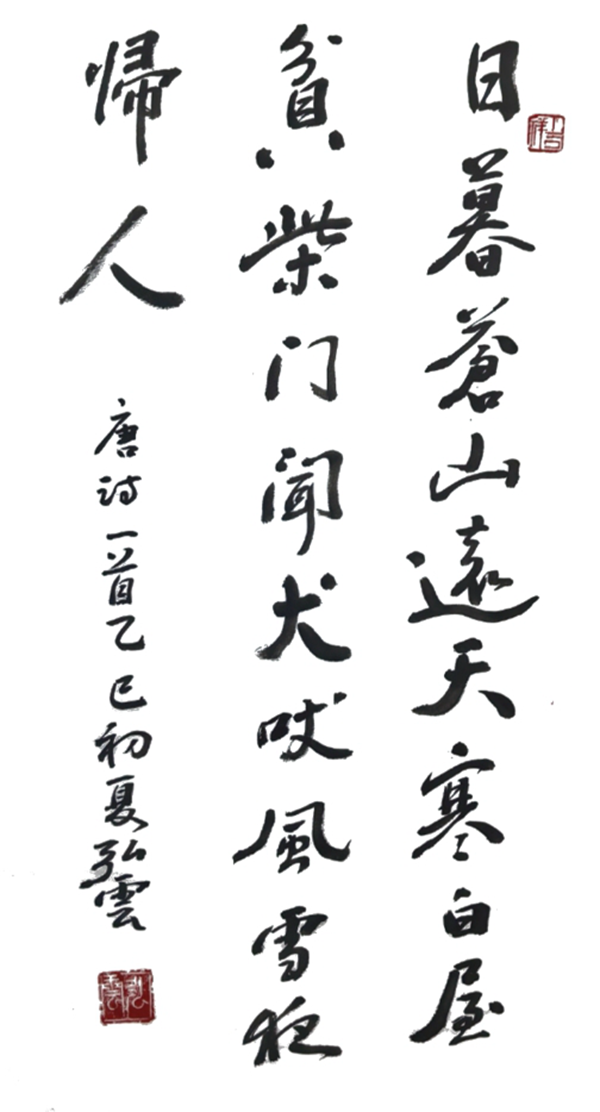 日暮蒼山遠天寒白屋
貧柴门闻犬吠風雪夜
歸人
唐诗一首乙巳初夏弘雲
吉祥
弘雲